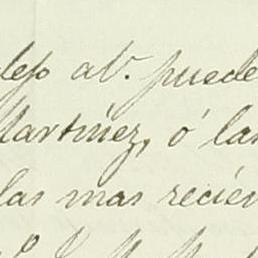 lejo a V. puede
Martínez, ó la
las mas recien